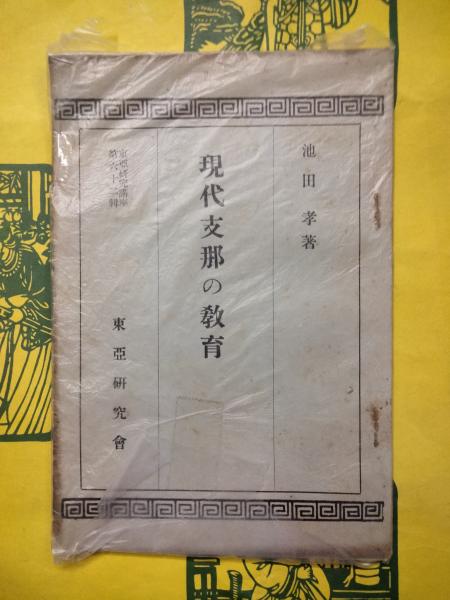 池田孝著
現代支那の教育
東亞研究講座
第六十二輯
東亞研究會